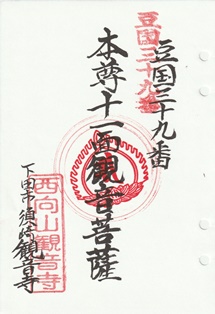 豆国三十九番
豆国三十九番
本尊十一面観音菩薩
下田市須崎観音寺
西向山
観音寺